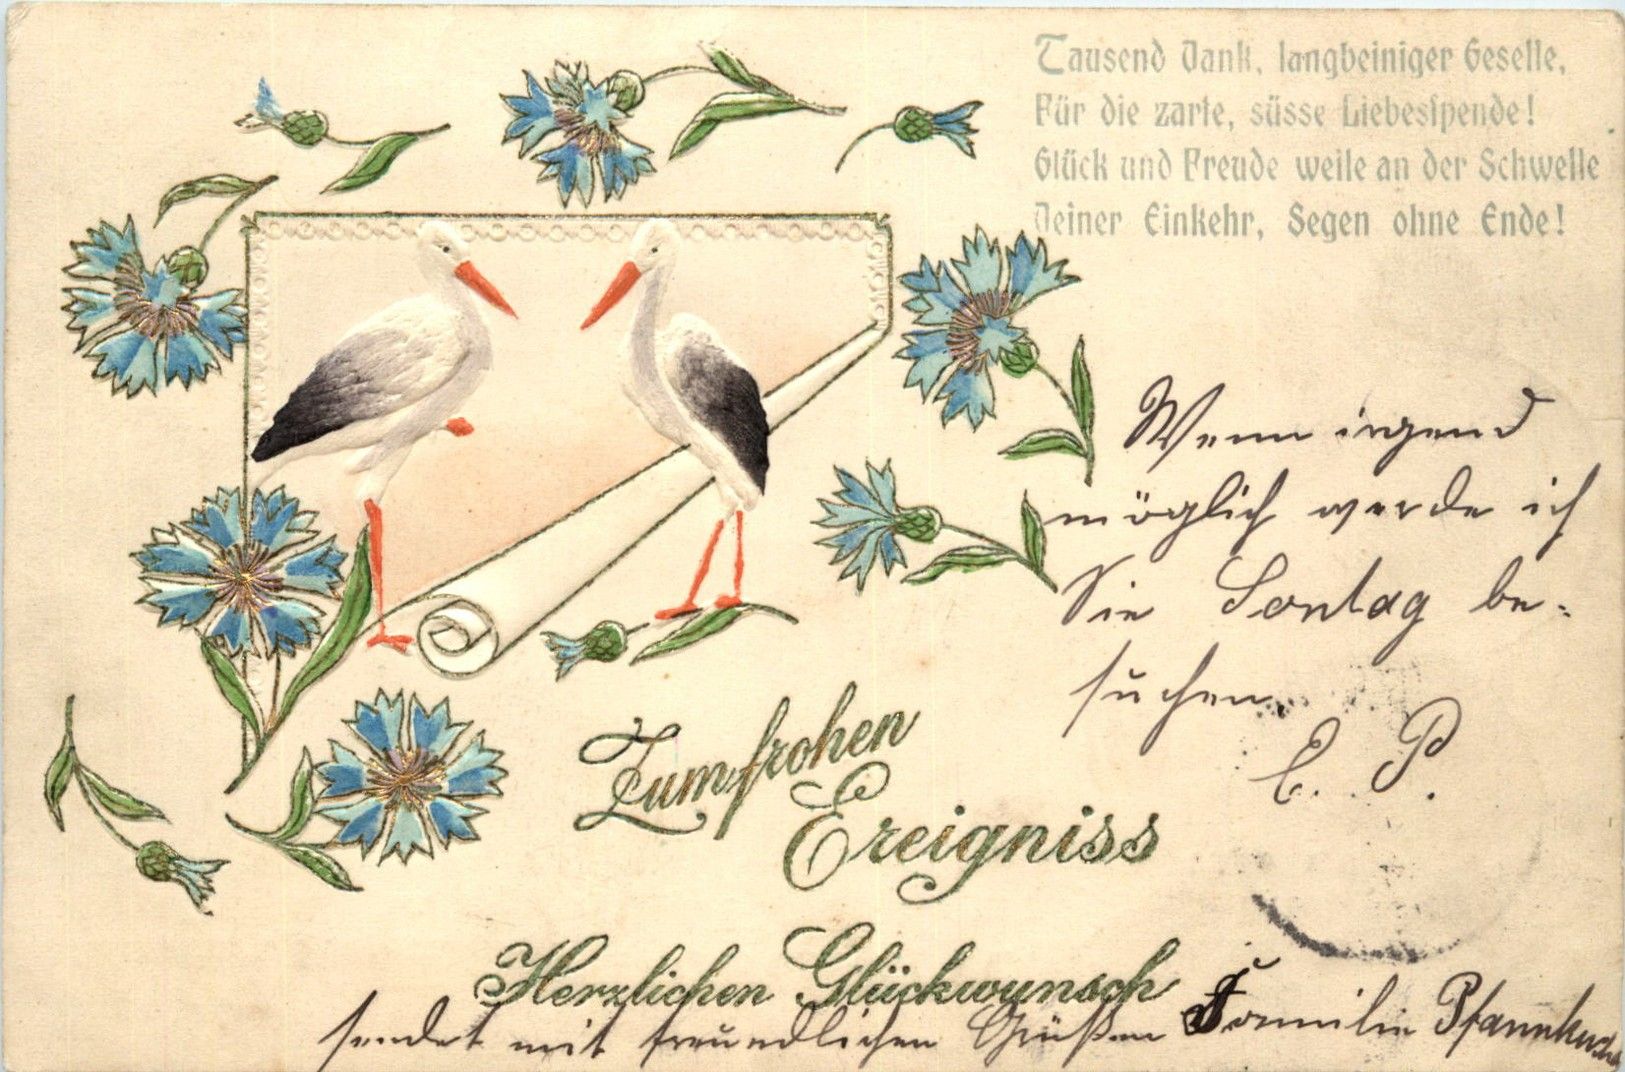 Tausend Dank, langbeiniger Geselle,
Für die zarte, süsse Liebesspende!
Glück und Freude weile an der Schwelle
Deiner Einkehr, Segen ohne Ende!
Wenn irgend
möglich werde ich
Sie Sontag be-
suchen.
E. P.
Zum frohen
Ereigniss
Herzlichen Glückwunsch
sendet mit freundlichen Grüßen Familie